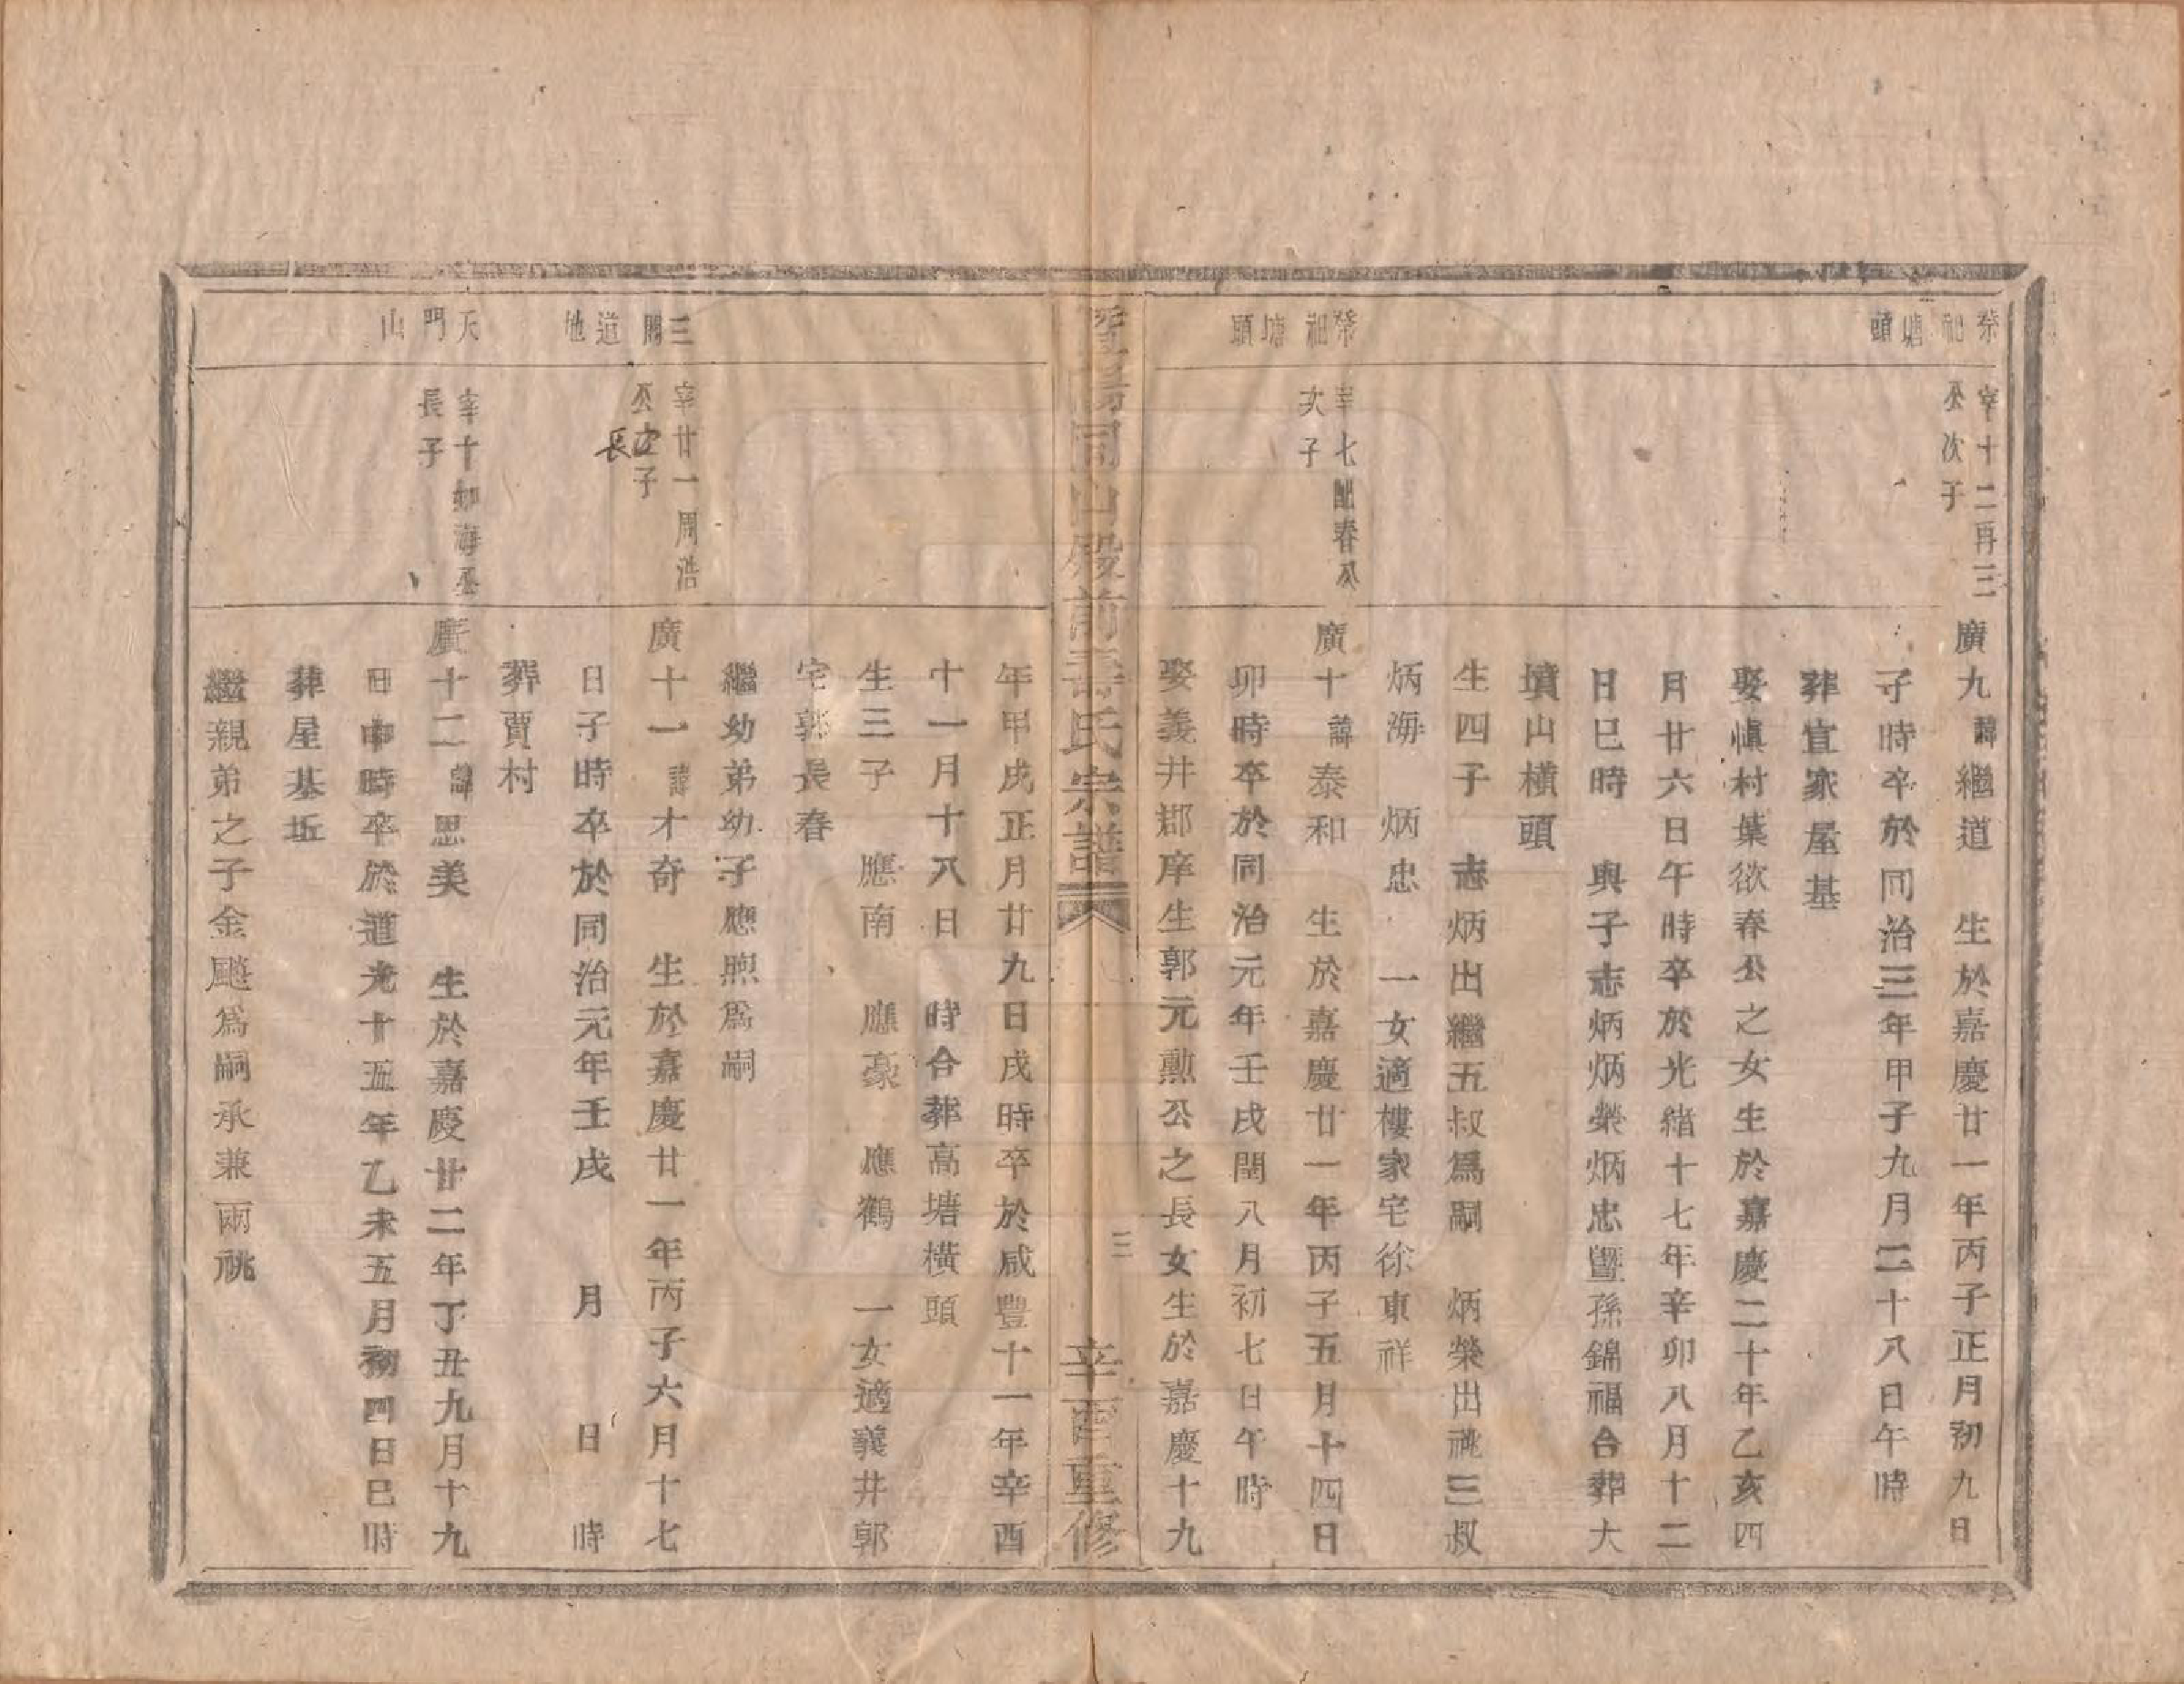 祭祖塘頭
宰十二再三
公次子
廣九諱繼道　生於嘉慶廿一年丙子正月初九日
子時卒於同治三年甲子九月二十八日午時
葬宣家屋基
娶愼村葉欲春公之女生於嘉慶二十年乙亥四
月廿六日午時卒於光緒十七年辛卯八月十二
日巳時　與子志炳炳榮炳忠曁孫錦福合葬大
墳山橫頭
生四子　志炳出繼五叔爲嗣　炳榮出祧三叔
炳海　炳忠　一女適樓家宅徐東祥
祭祖塘頭
宰七配春公
次子
廣十諱泰和　生於嘉慶廿一年丙子五月十四日
卯時卒於同治元年壬戌閏八月初七日午時
娶義井郡庠生郭元勳公之長女生於嘉慶十九
暨陽同山殿前壽氏宗譜
三
辛酉重修
年甲戌正月廿九日戌時卒於咸豐十一年辛酉
十一月十八日　時合葬高塘橫頭
生三子　應南　應豪　應鶴　一女適義井郭
宅郭長春
繼幼弟幼子應煦爲嗣
三間道地
宰廿一周浩
公次子
長
廣十一諱才奇　生於嘉慶廿一年丙子六月十七
日子時卒於同治元年壬戌　月　日　時
葬賈村
天門山
宰十如海公
長子
廣十二諱思美　生於嘉慶廿二年丁丑九月十九
日申時卒於道光十五年乙未五月初四日巳時
葬屋基坵
繼親弟之子金颷爲嗣承兼兩祧